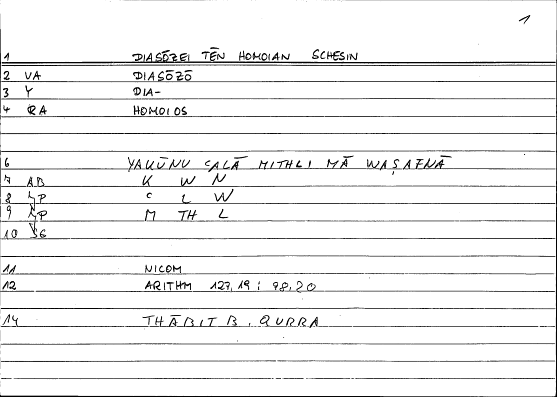 1
1 DIASŌZEI TĒN HOMOIAN SCHESIN
2 VA DIASŌZŌ
3 Y DIA-
4 RA HOMOIOS
6 YAKŪNU CALĀ MITHLI MĀ WAṢAFNĀ
7 AB K W N
8 P C L W
9 P M TH L
10 SG
11 NICOM
12 ARITHM 127,19 : 98,20
14 THĀBIT B. QURRA